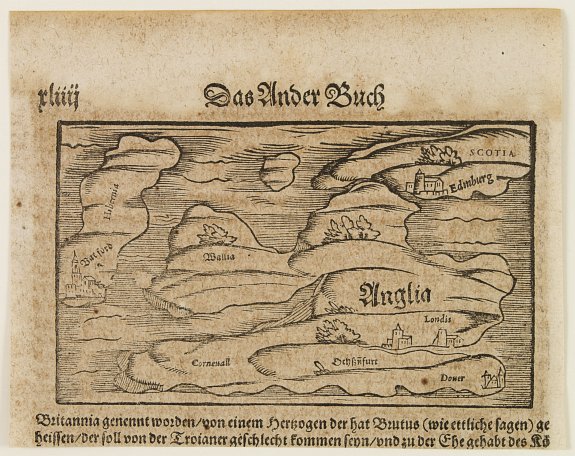 xliiij
Das Ander Buch
SCOTIA
Edinburg
Hibernia
Watford
Wallia
Anglia
Londis
Cornevall
Ochßnfurt
Dover
Britannia genennt worden/von einem Hertzogen der hat Brutus (wie ettliche sagen) ge
heissen/der soll von der Troianer geschlecht kommen seyn/vnd zu der Ehe gehabt des Kö